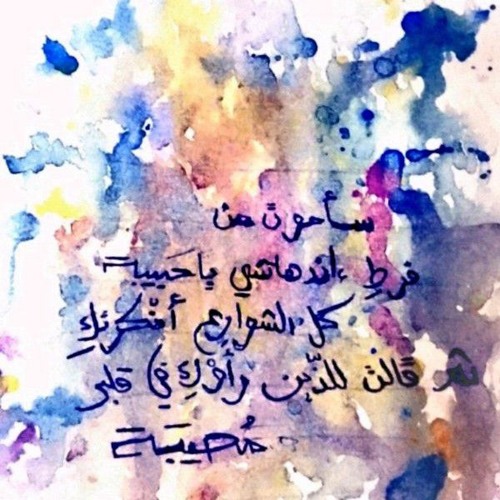 سأموت من
فرطِ اندهاشي يا حَبيبة
كل الشوارع أنْكرتكِ
ثم قالت للذّين رأوْكِ في قلبي
مُصيبَة